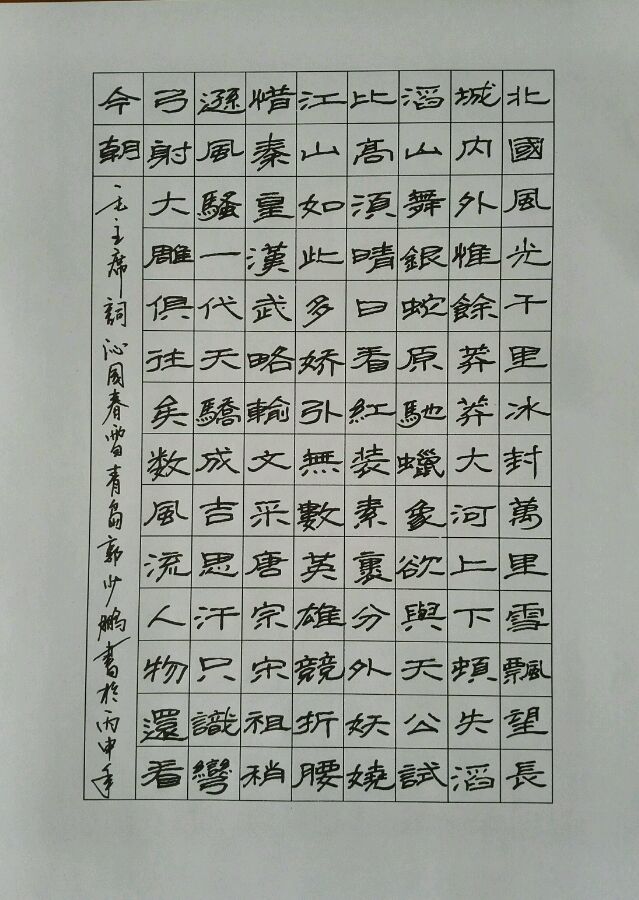 北國風光千里冰封萬里雪飄望長
城内外惟餘莽莽大河上下頓失滔
滔山舞銀蛇原馳蠟象欲與天公試
比高須晴日看紅装素裹分外妖嬈
江山如此多娇引無數英雄競折腰
惜秦皇漢武略輸文采唐宗宋祖稍
遜風騷一代天驕成吉思汗只識彎
弓射大雕俱往矣数風流人物還看
今朝
毛主席詞沁園春雪青島郭少鹏書於丙申年